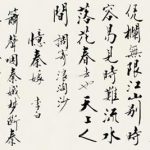 凭欄無限江山別時
容易見時難流水
落花春去也天上人
間 調寄浪淘沙
憶秦娥 李白
簫聲咽秦娥夢斷秦